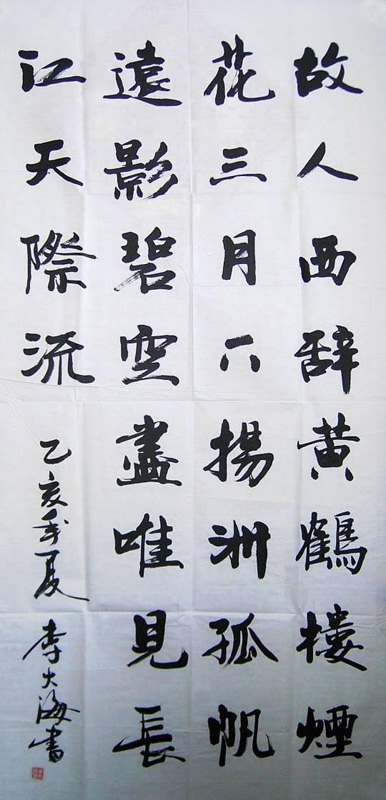 故人西辞黄鶴楼煙
花三月下揚洲孤帆
遠影碧空盡唯見長
江天際流
乙亥年夏
李大海書